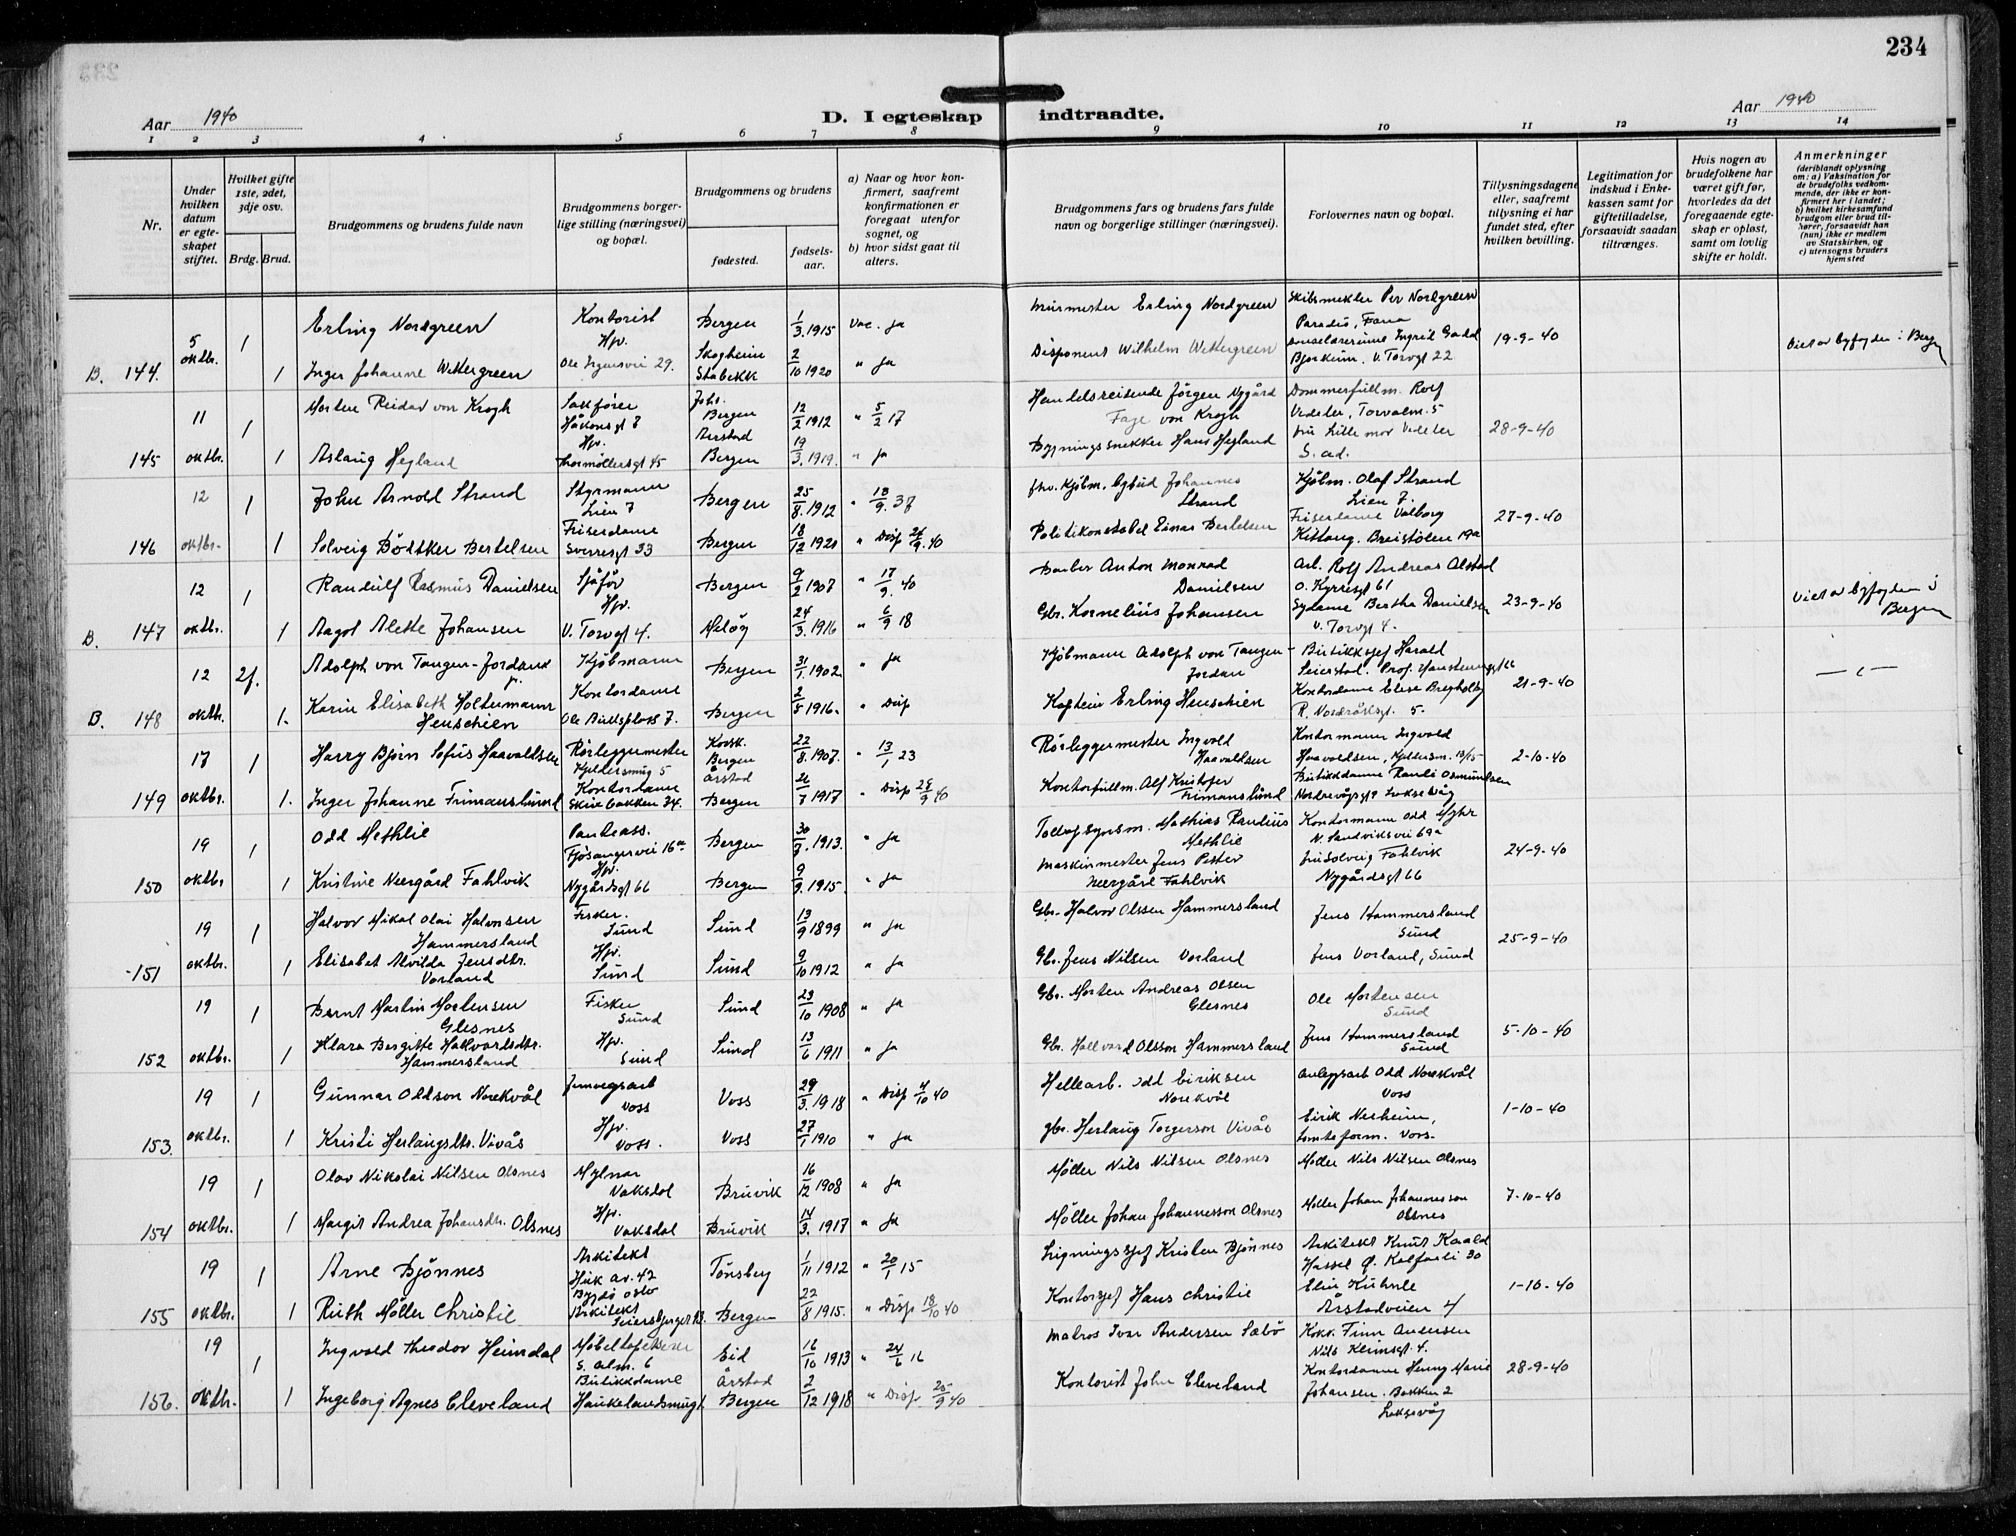 234
Aar 1940
D. I egteskap indtraadte.
Aar 1940
1 2 3 4 5 6 7 8 9 10 11 12 13 14
Nr.
Under hvilken datum er egteskapet stiftet.
Hvilket gifte 1ste, 2det, 3dje osv.
Brdg. Brud.
Brudgommens og brudens fulde navn
Brudgommens borgerlige stilling (næringsvei) og bopæl.
Brudgommens og brudens
fødested.
fødselsaar.
a) Naar og hvor konfirmert, saafremt konfirmationen er foregaat utenfor sognet, og
b) hvor sidst gaat til alters.
Brudgommens fars og brudens fars fulde navn og borgerlige stillinger (næringsvei).
Forlovernes navn og bopæl.
Tillysningsdagene eller, saafremt tillysning ei har fundet sted, efter hvilken bevilling.
Legitimation for indskud i Enkekassen samt for giftetilladelse, forsaavidt saadan tiltrænges.
Hvis nogen av brudefolkene har været gift før, hvorledes da det foregaaende egteskap er opløst, samt om lovlig skifte er holdt.
Anmerkninger (deriblandt oplysning om: a) Vaksination for de brudefolks vedkommende, der ikke er konfirmert her i landet; b) hvilket kirkesamfund brudgom eller brud tilhører, forsaavidt han (hun) ikke er medlem av Statskirken, og c) utensogns bruders hjemsted
B. 144. 5 oktbr. 1 Erling Nordgreen Kontorist Bergen 1/3. 1915 Vac. ja Murmester Erling Nordgreen Skibsmekler Per Nordgreen Paradis, Fana 19-9-40 Viet av byfogden i Bergen
1 Inger Johanne Wettergreen Hjv. Ole Irgensvei 29. Skogheim Stabekk 2/10 1920 " ja Disponent Wilhelm Wettergreen Ingrid Gadd Bjerkeim, V. Torvgt 22
145 11 oktbr. 1 Morten Reidar von Krogh Sakfører Håkonsgt 7 Johs. Bergen 12/2 1912 " 5/2 17 Handelsreisende Jørgen Nygård Faye von Krogh Dommerfullm. Rolf Vedeler, Torvalm. 5 28-9-40
1 Aslaug Hegland Hjv. Thormøllersgt 45 Årstad Bergen 19/3. 1919. " ja Bygningssnekker Hans Hegland fru Lillemor Vedeler S. ad.
146 12 oktbr. 1 John Arnold Strand Styrmann Lien 7 Bergen 25/8. 1912 " 18/9. 37 fhv. Kjøbm. bybud Johannes Strand Kjøbm. Olaf Strand Lien 7. 27-9-40
1 Solveig Bødtker Bertelsen Friserdame Sverresgt 33 Bergen 18/12 1920 " Disp 26/9. 40 Politikonstabel Einar Bertelsen Friserdame Valborg Kittang. Breistølen 19a
B. 147 12 oktbr. 1 Randulf Rasmus Danielsen Sjåfør Bergen 9/2 1907 " 17/9. 40 Barber Anton Monrad Danielsen Arb. Rolf Andreas Alstad O. Kyrresgt 61 23-9-40 Viet av byfogden i Bergen
1 Aagot Alette Johansen Hjv. V. Torvgt 4. Meløy 24/3. 1916 " 6/9 18 Gbr. Kornelius Johansen Sydame Bertha Danielsen V. Torvgt 4.
B. 148 12 oktbr. 2f. Adolph von Tangen-Jordan jr. Kjøbmann Bergen 31/1. 1902. " ja Kjøbmann Adolph von Tangen-Jordan Butikksjef Harald Seierstad. Prof. Hansteensgt 66 21-9-40 — " —
1. Karin Elisabeth Holtermann Henschien Kontordame Ole Bullsplass 7. Bergen 2/5 1916. " Disp Kaptein Erling Henschien Kontordame Elise Bregholty R. Nordråksgt. 5.
149 17 oktbr. 1 Harry Bjørn Sofus Haavaldsen Rørleggermester Kjeldersmug 5 Korsk. Bergen 22/8. 1907. " 13/1 23 Rørleggermester Ingvald Haavaldsen Kontormann Ingvald Haavaldsen, Kjeldersm. 13/15 2-10-40
1. Inger Johanne Frimanslund Kontordame Skivebakken 34. Årstad Bergen 21/7 1917 " Disp 28/9 40 Kontorfullm. Alf Kristofer Frimanslund Butikkdame Randi Osmundsen Nordrevågsgt 9 Laksevåg
150 19 oktbr 1 Odd Methlie Bankass. Fjøsangervei 16a Bergen 30/3. 1913. " ja Tollopsynsm. Mathias Paulius Methlie Kontormann Odd Myhr N. Sandviksvei 69a 24-9-40
1 Kristine Neergård Fahlvik Hjv. Nygårdsgt 66 Bergen 9/9. 1915. " ja Maskinmester Jens Petter Neergård Fahlvik fru Solveig Fahlvik Nygårdsgt 66
151 19 oktbr. 1 Halvor Mikal Olai Halvorsen Hammersland Fisker. Sund Sund 13/9 1899 " ja Gbr. Halvor Olssen Hammersland Jens Hammersland Sund 25-9-40
1 Elisabet Alvilda Jensdtr. Vorland Hjv. Sund Sund 9/10 1912 " ja Gbr. Jens Nilsen Vorland Jens Vorland, Sund
152 19 oktbr. 1 Bernt Martin Mortensen Glesnes Fisker Sund Sund 23/10 1908 " ja Gbr. Morten Andreas Olsen Glesnes Ole Mortensen Sund 5-10-40
1 Klara Bergitte Hallvardsdtr. Hammersland Hjv. Sund Sund 13/6 1911 " ja Gbr. Hallvard Olsson Hammersland Jens Hammersland Sund
153. 19 oktbr. 1 Gunnar Oddson Norekvål Jernvegsarb Voss Voss 29/3. 1918 " Disp 4/10 40 Hellearb. Odd Eiriksen Norekvål Anleggsarb Odd Norekvål Voss 1-10-40
1 Kristi Herlaugsdtr. Vivås Hjv. Voss. Voss 27/1 1910 " ja gbr. Herlaug Torgerson Vivås Eirik Nesheim, Voss.
154 19 oktbr. 1 Olav Nikolai Nilsen Olsnes Mylnar Vaksdal Bruvik 16/12 1908 " ja Møller Nils Nilsen Olsnes Møller Nils Nilsen Olsnes 7-10-40
1 Margit Andrea Johansdtr. Olsnes Hjv. Vaksdal Bruvik 14/3. 1917 " ja Møller Johan Johannesson Olsnes Møller Johan Johannesson Olsnes
155 19 oktbr. 1 Arne Bjønnes Arkitekt Huk av. 42 Bygdø Oslo Tønsberg 1/11 1912 " 20/1 15 Ligningssjef Kristen Bjønnes Arkitekt Knut Kaald Hassel Ø. Kalfarli 30 1-10-40
1 Ruth Møller Christie Arkitekt Seiersbjerget 13. Bergen 22/8 1915. " Disp 18/10 40 Kontorsjef Hans Christie Elin Kuhnle Årstadveien 4
156. 19 oktbr. 1 Ingvald Theodor Heimdal Møbeltapetserer S. alm. 6 Eid 16/10 1913 " 24/6 16 Matros Ivar Andersen Sæbø Kokk. Finn Andersen Nils Klimsgt. 4. 28-9-40
1 Ingeborg Agnes Cleveland Butikkdame Haukelandsmug 1. Årstad Bergen 2/12 1918 " Disp 25/9 40 Kontorist John Cleveland Kontordame Henny Marie Johansen. Bakken 2 Laksevåg